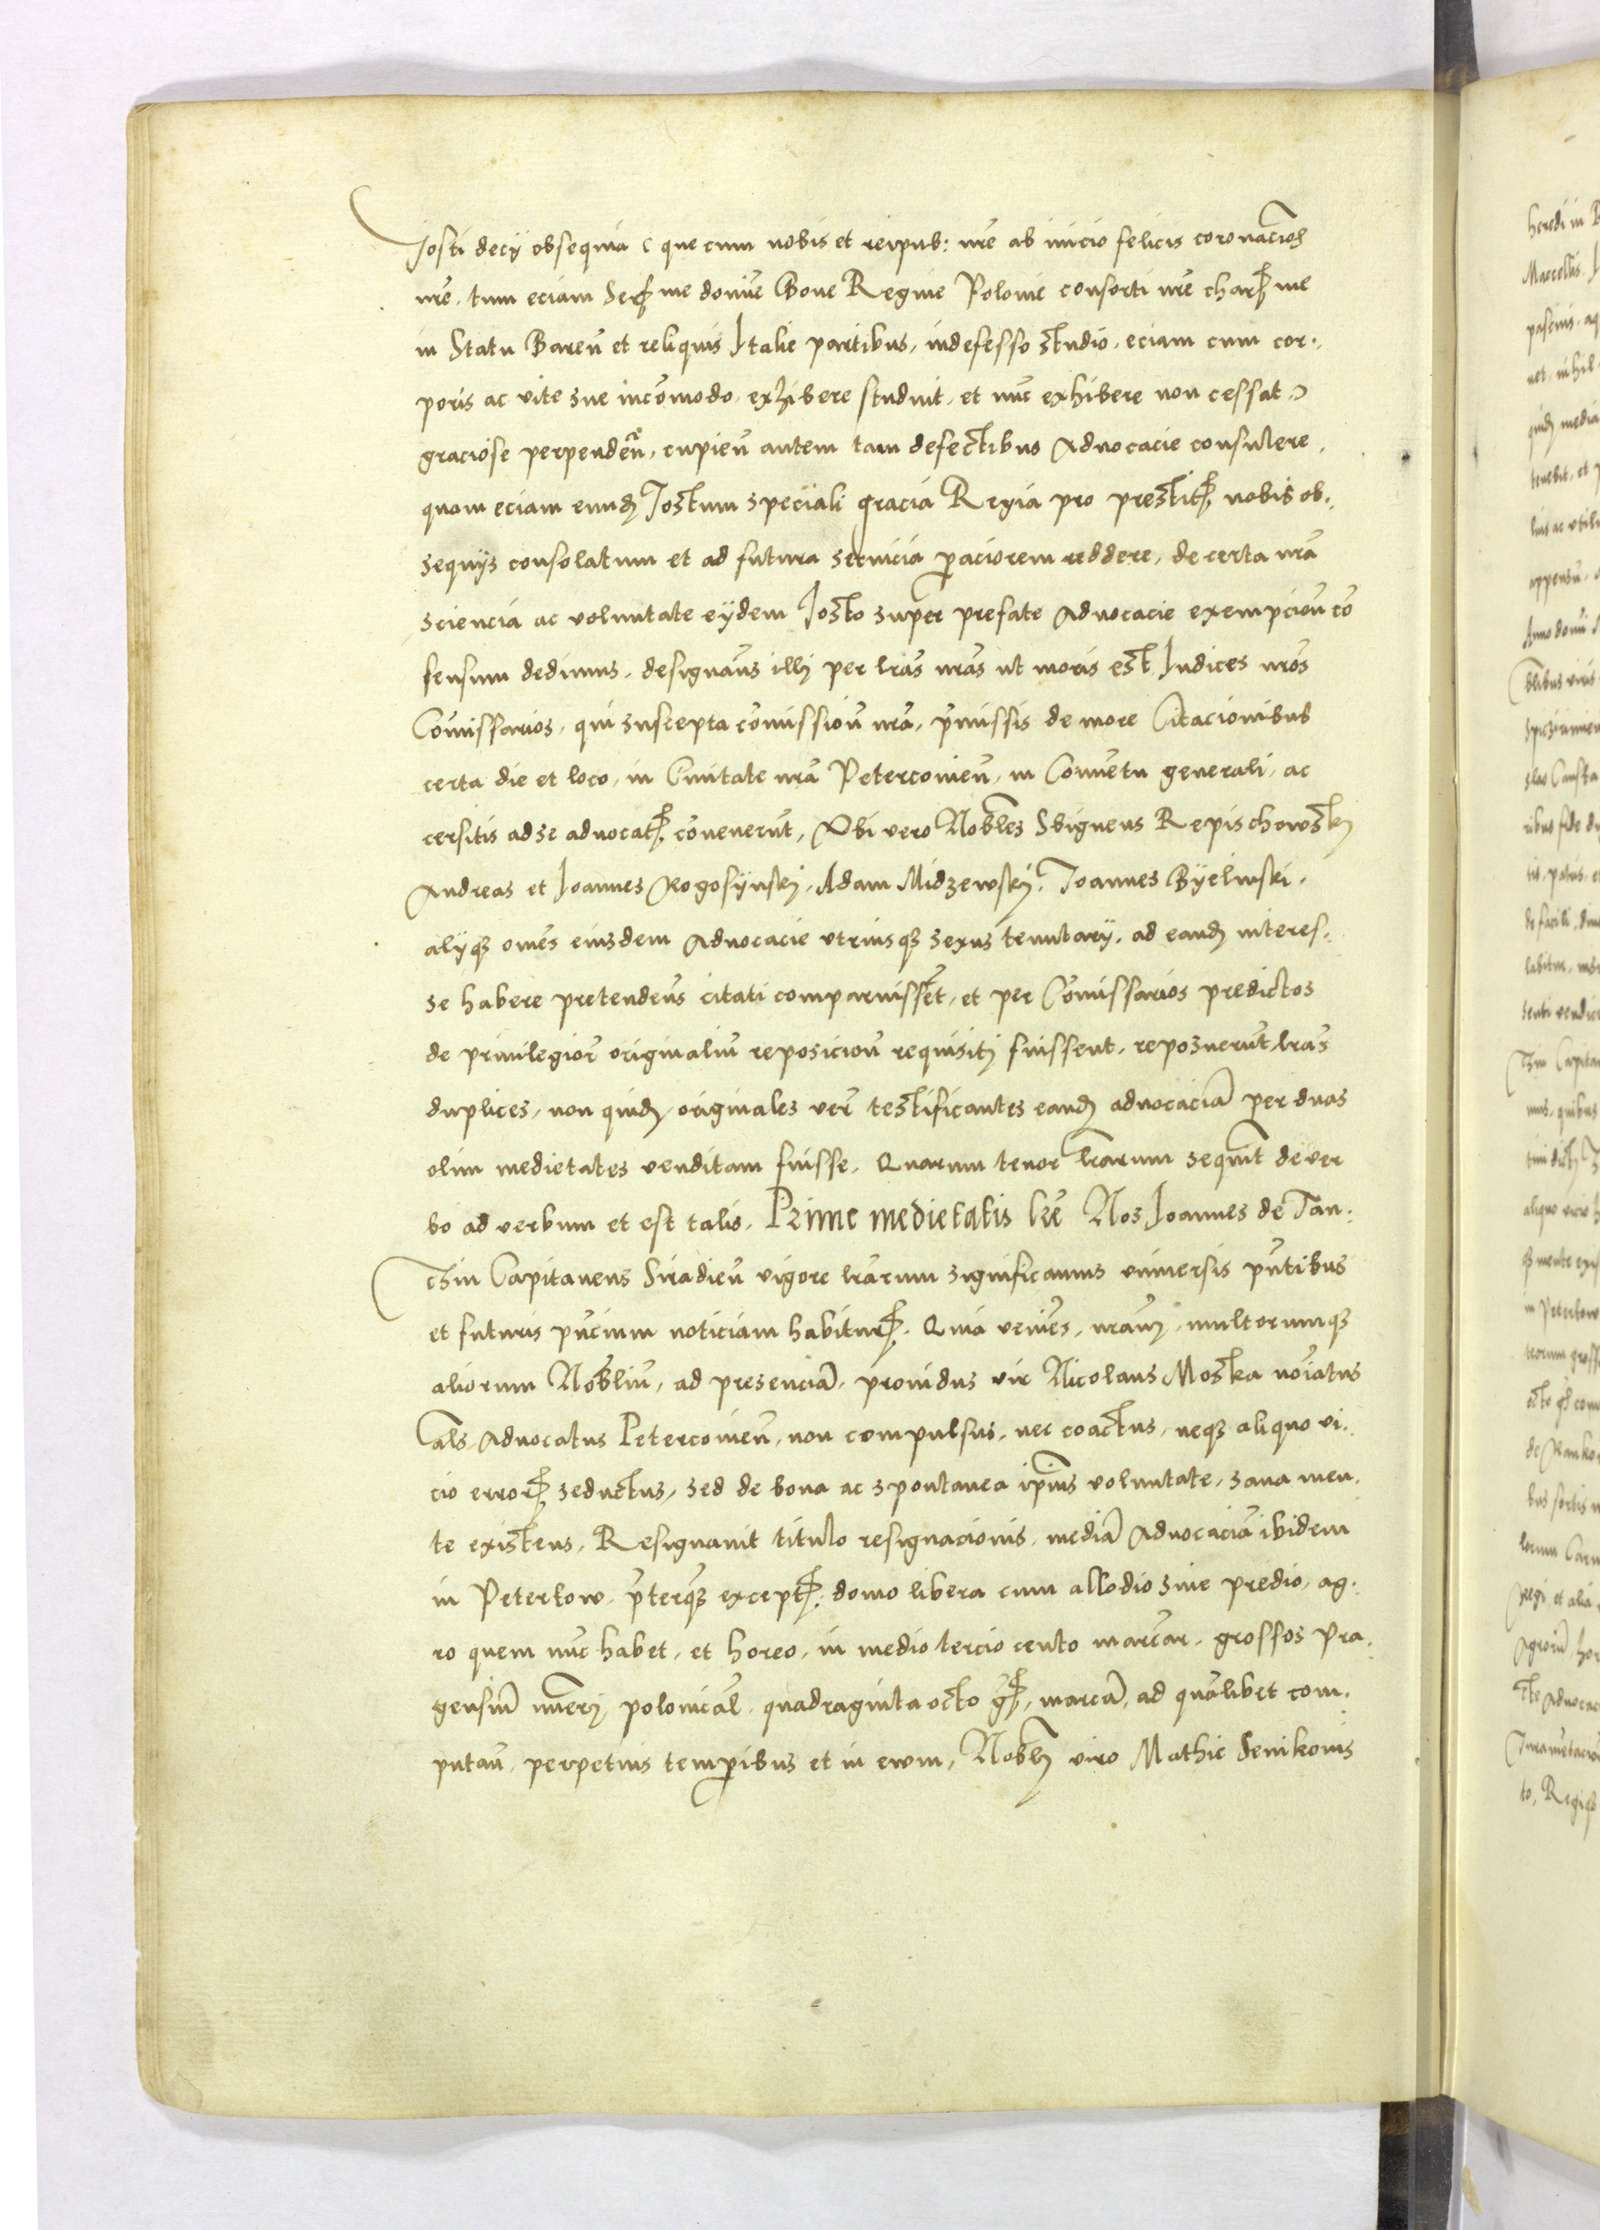 Josti decÿ obsequia ( que cum nobis et reipub: nrē ab inicio felicis coronacīoīs
nrē, tum eciam Serme domīe Bone Regine Polonie consorti nrē charme
in Statu Bareñ et reliquis Italie partibus, indefesso studio, eciam cum cor.
poris ac vite sue incōmodo, exhibere studuit, et nūc exhibere non cessat )
graciose perpendeñ, cupieñ autem tam defectibus Advocacie consulere,
quam eciam eundꝫ Jostum speciali gracia Regia pro prestitꝭ nobis ob.
sequÿs consolatum et ad futura servicia ꝑaciorem reddere, de certa nrā
sciencia ac voluntate eÿdem Josto super prefate Advocacie exempcioñ cō
sensum dedimus, designañs illj per lrās nrās ut moris est Iudices nrōs
Cōmissarios, qui suscepta cōmissioñ nrā, p̄missis de more Citacionibus
certa die et loco, in Civitate nrā Petercovieñ, in Conuētu generali, ac
cersitis ad se advocatꝭ cōvenerūt, Vbi vero Nobīles Sbigneus Repischowskj
Andreas et Joannes Rogosÿnskj, Adam Midzewskj, Joannes Byelinski,
alÿqꝫ omēs eiusdem Advocacie vtriusqꝫ sexus tenutarÿ, ad eandꝫ interes.
se habere pretendeñs citati comparuissēt, et per Cōmissarios predictos
de privilegior̄ originaliū reposicioñ requisitj fuissent, reposuerūt lrās
duplices, non quidꝫ originales ver̄ testificantes eandꝫ advocaciā per duas
olim medietates venditam fuisse, Quarum tenor lrārum sequit̄ de ver
bo ad verbum et est talis. Prime medietatis lrē Nos Joannes de Tan.
czin Capitaneus Siradieñ vigore lrārum significamus vniversis pñtibus
et futuris pñcium noticiam habiturꝭ. Quia veniēs, nrām, multorumqꝫ
aliorum Nobīliū, ad presenciā, providus vir Nicolaus Moska noīatus
als Advocatus Petercovieñ, non compulsus, nec coactus, neqꝫ aliquo vi.
cio errorꝭ seductus, sed de bona ac spontanea ipīus voluntate, sana men.
te existens, Resignavit titulo resignacionis, mediā Advocaciā ibidem
in Peterkow, p̄terqꝫ exceptꝭ, domo libera cum allodio sive predio, ag.
ro quem nūc habet, et horeo, in medio tercio cento marcar, grossos Pra.
gensiū nūerj polonical, quadraginta octo grꝭ, marcā, ad quālibet com.
putañ, perpetuis temꝑibus et in ewm, Nobīlj viro Mathie Senikonis